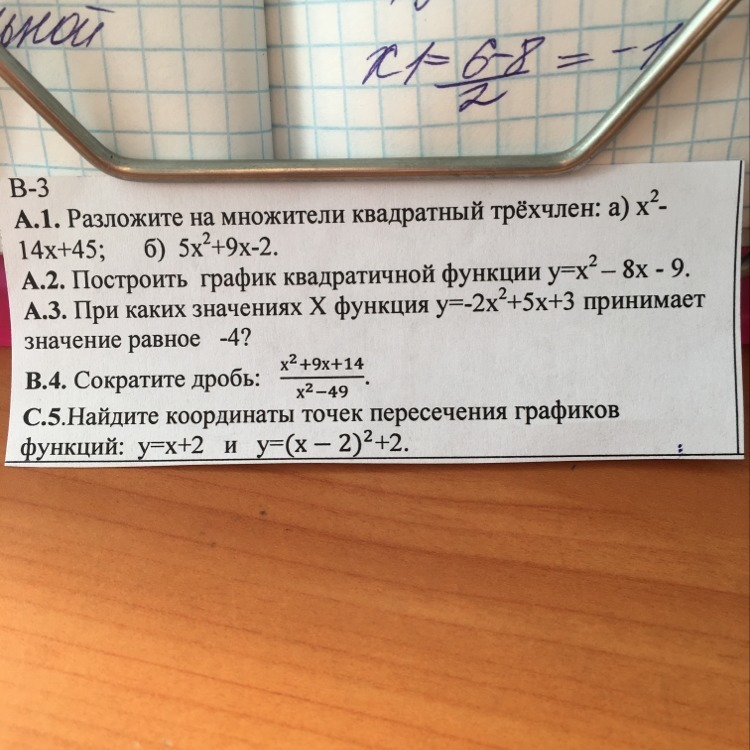 ьной
x1 = 6-8/2 = -1
В-3
А.1. Разложите на множители квадратный трёхчлен: а) x²-
14x+45; б) 5x²+9x-2.
А.2. Построить график квадратичной функции y=x² – 8x - 9.
А.3. При каких значениях X функция y=-2x²+5x+3 принимает
значение равное -4?
В.4. Сократите дробь: x²+9x+14/x²−49.
С.5.Найдите координаты точек пересечения графиков
функций: y=x+2 и y=(x − 2)²+2.